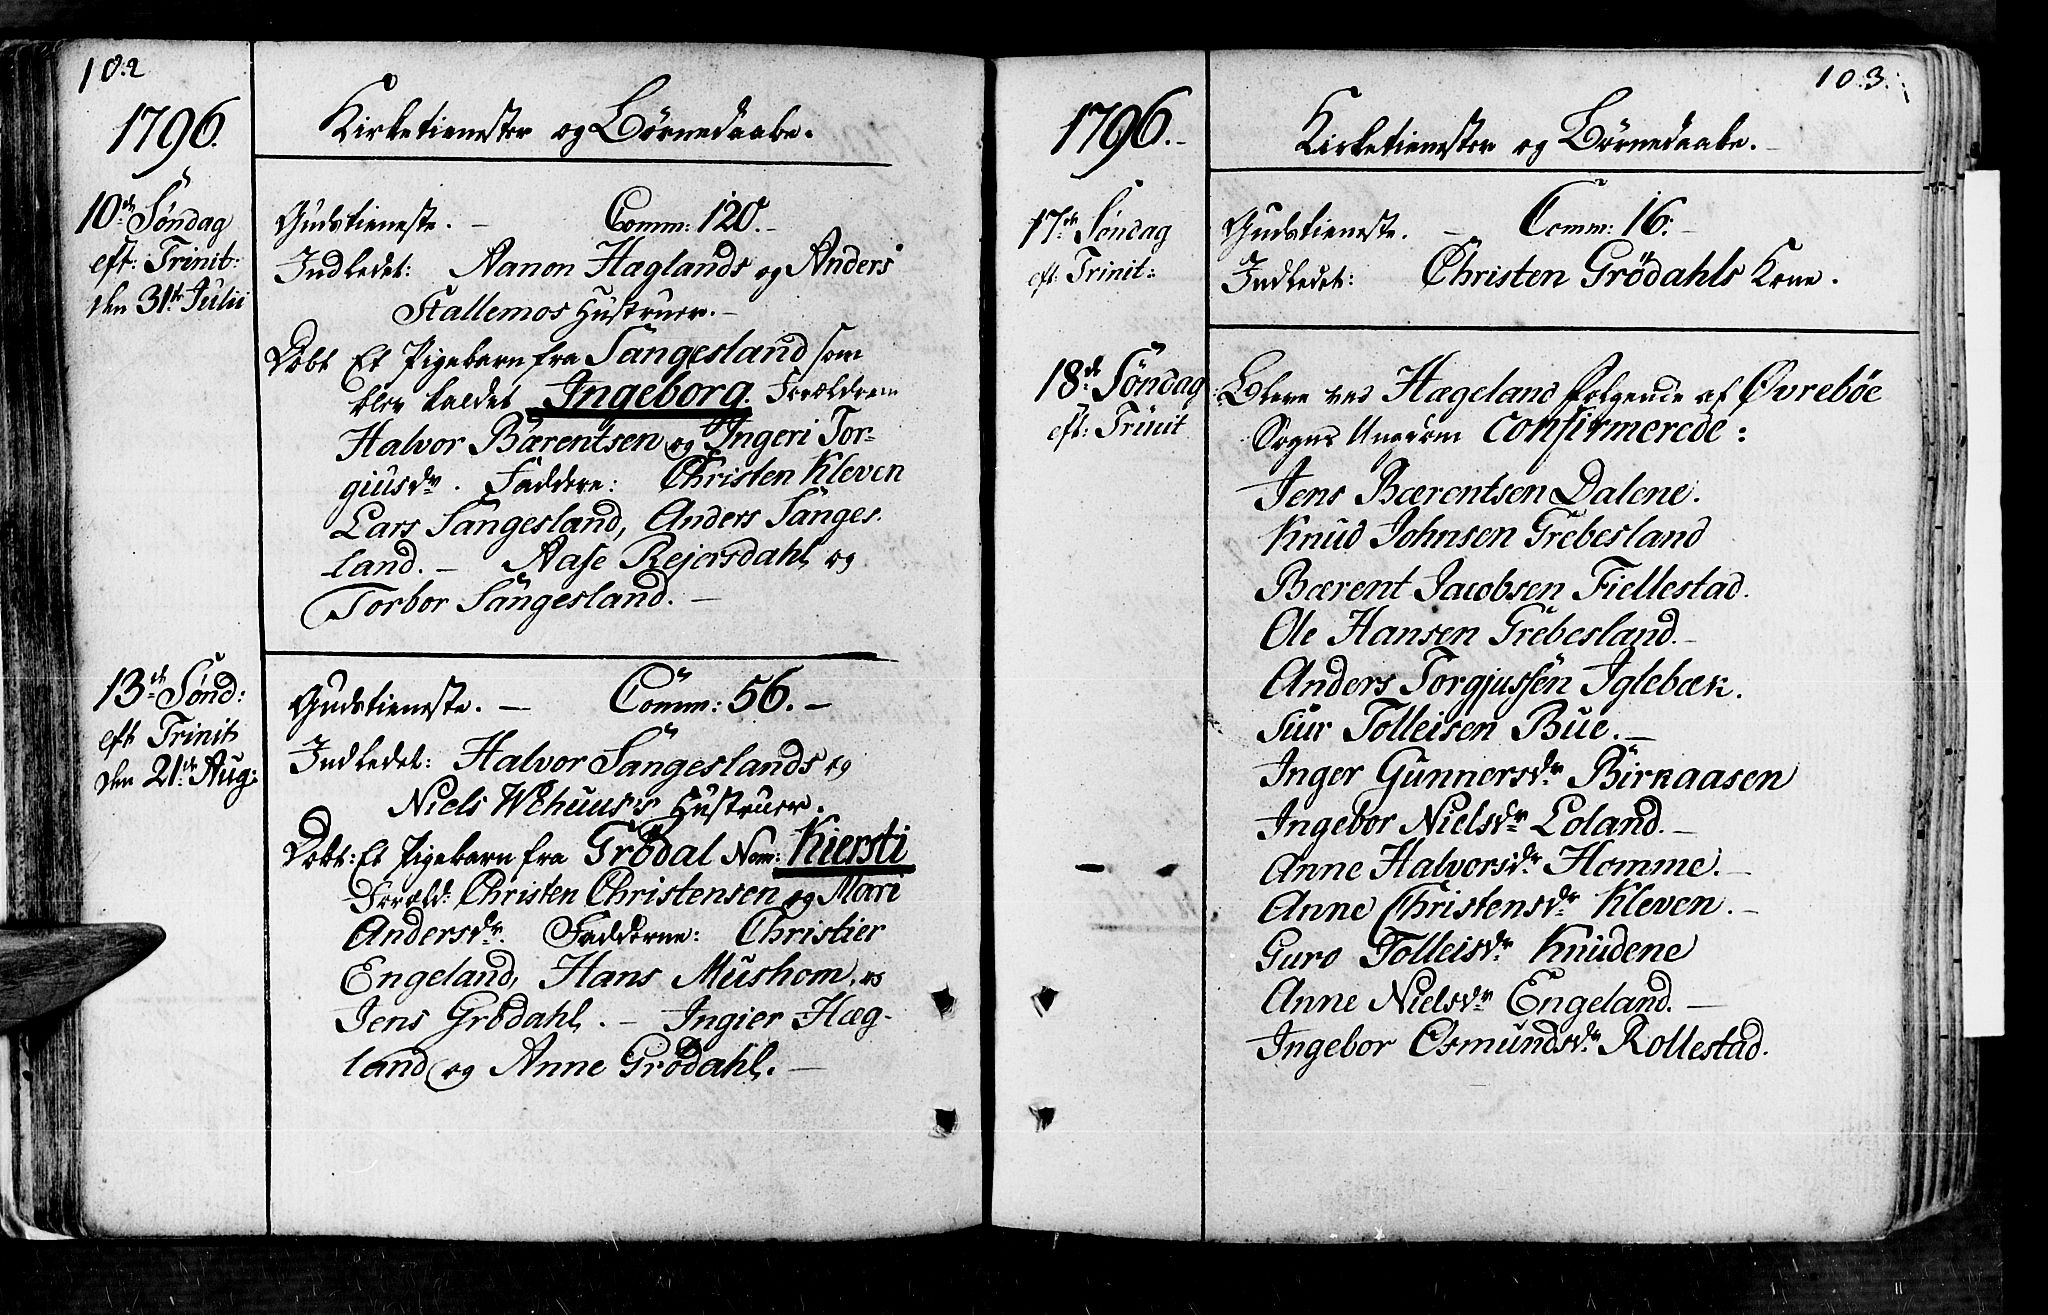 102
1796.
Kirketienester og Børnedaabe.
10de Søndag
eft: Trinit:
den 31te Julii
Gudstieneste. — Comm: 120. -
Indledet: Aanon Hæglands og Anders
Stallemos Hustruer. -
Døbt Et Pigebarn fra Sangesland som
blev kaldet Ingeborg. Forældrene
Halvor Bærentsen og Ingeri Tor-
giusdr. Faddere: Christen Kleven
Lars Sangesland, Anders Sanges-
land. - Aase Rejersdahl og
Torbor Sangesland. -
13de Sønd:
eft Trinit
den 21de Aug:
Gudstieneste. — Comm: 56. -
Indledet: Halvor Sangeslands og
Niels Wehuus's Hustruer.
Døbt: Et Pigebarn fra Grödal Nom: Kiersti
Foræld: Christen Christensen og Mari
Andersdr. Fadderne: Christier
Engeland, Hans Mushom, og
Jens Grödahl. - Ingier Hæg-
land og Anne Grödahl. -
103.
1796. -
Kirketienester og Børnedaabe. -
17de Søndag
eft: Trinit:
Gudstieneste. - Comm: 16. -
Indledet: Christen Grödahls Kone.
18de Søndag
eft: Trinit
Bleve ved Hægeland følgende af Øvrebøe
Sogns Ungdom confirmerede:
Jens Bærentsen Dalene.
Knud Johnsen Grebesland
Bærent Jacobsen Fiellestad.
Ole Hansen Grebesland. -
Anders Torgjussen Iglebæk.
Siur Tolleisen Bue. -
Inger Gunnersdr Birkaasen
Ingebor Nielsdr Loland. -
Anne Halvorsdr Homme. -
Anne Christensdr Kleven. -
Guro Tolleisdr Knudene
Anne Nielsdr Engeland. -
Ingebor Osmundsdr Rollestad.